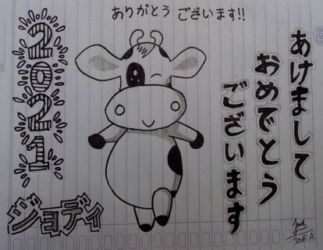 ありがとう ございます!!
2021
ジョディ
あけまして
おめでとう
ございます